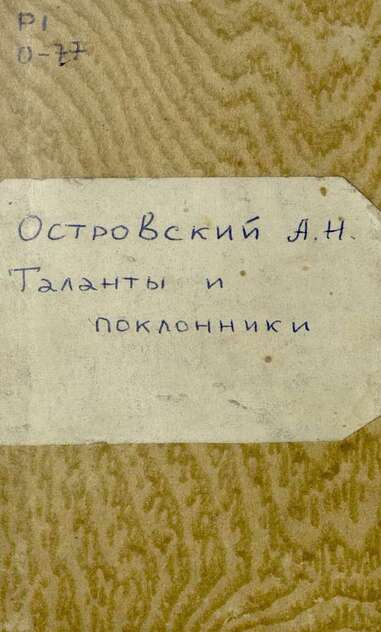 Р1
О-77
Островский А.Н.
Таланты и
поклонники